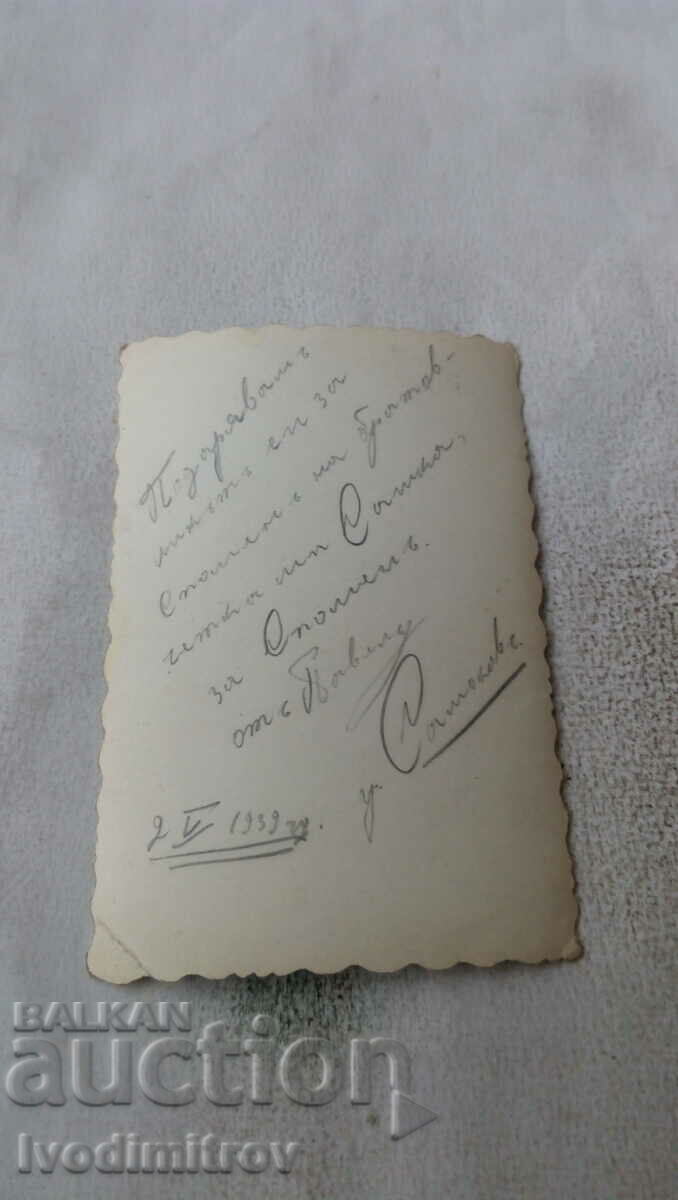 Подарявамъ
ликътъ си за
Споменъ на братов-
четка ми Сашка,
за Споменъ.
отъ Павелъ
у. Самоковъ.
2 V 1939 г.
BALKAN
auction
Ivodimitrov